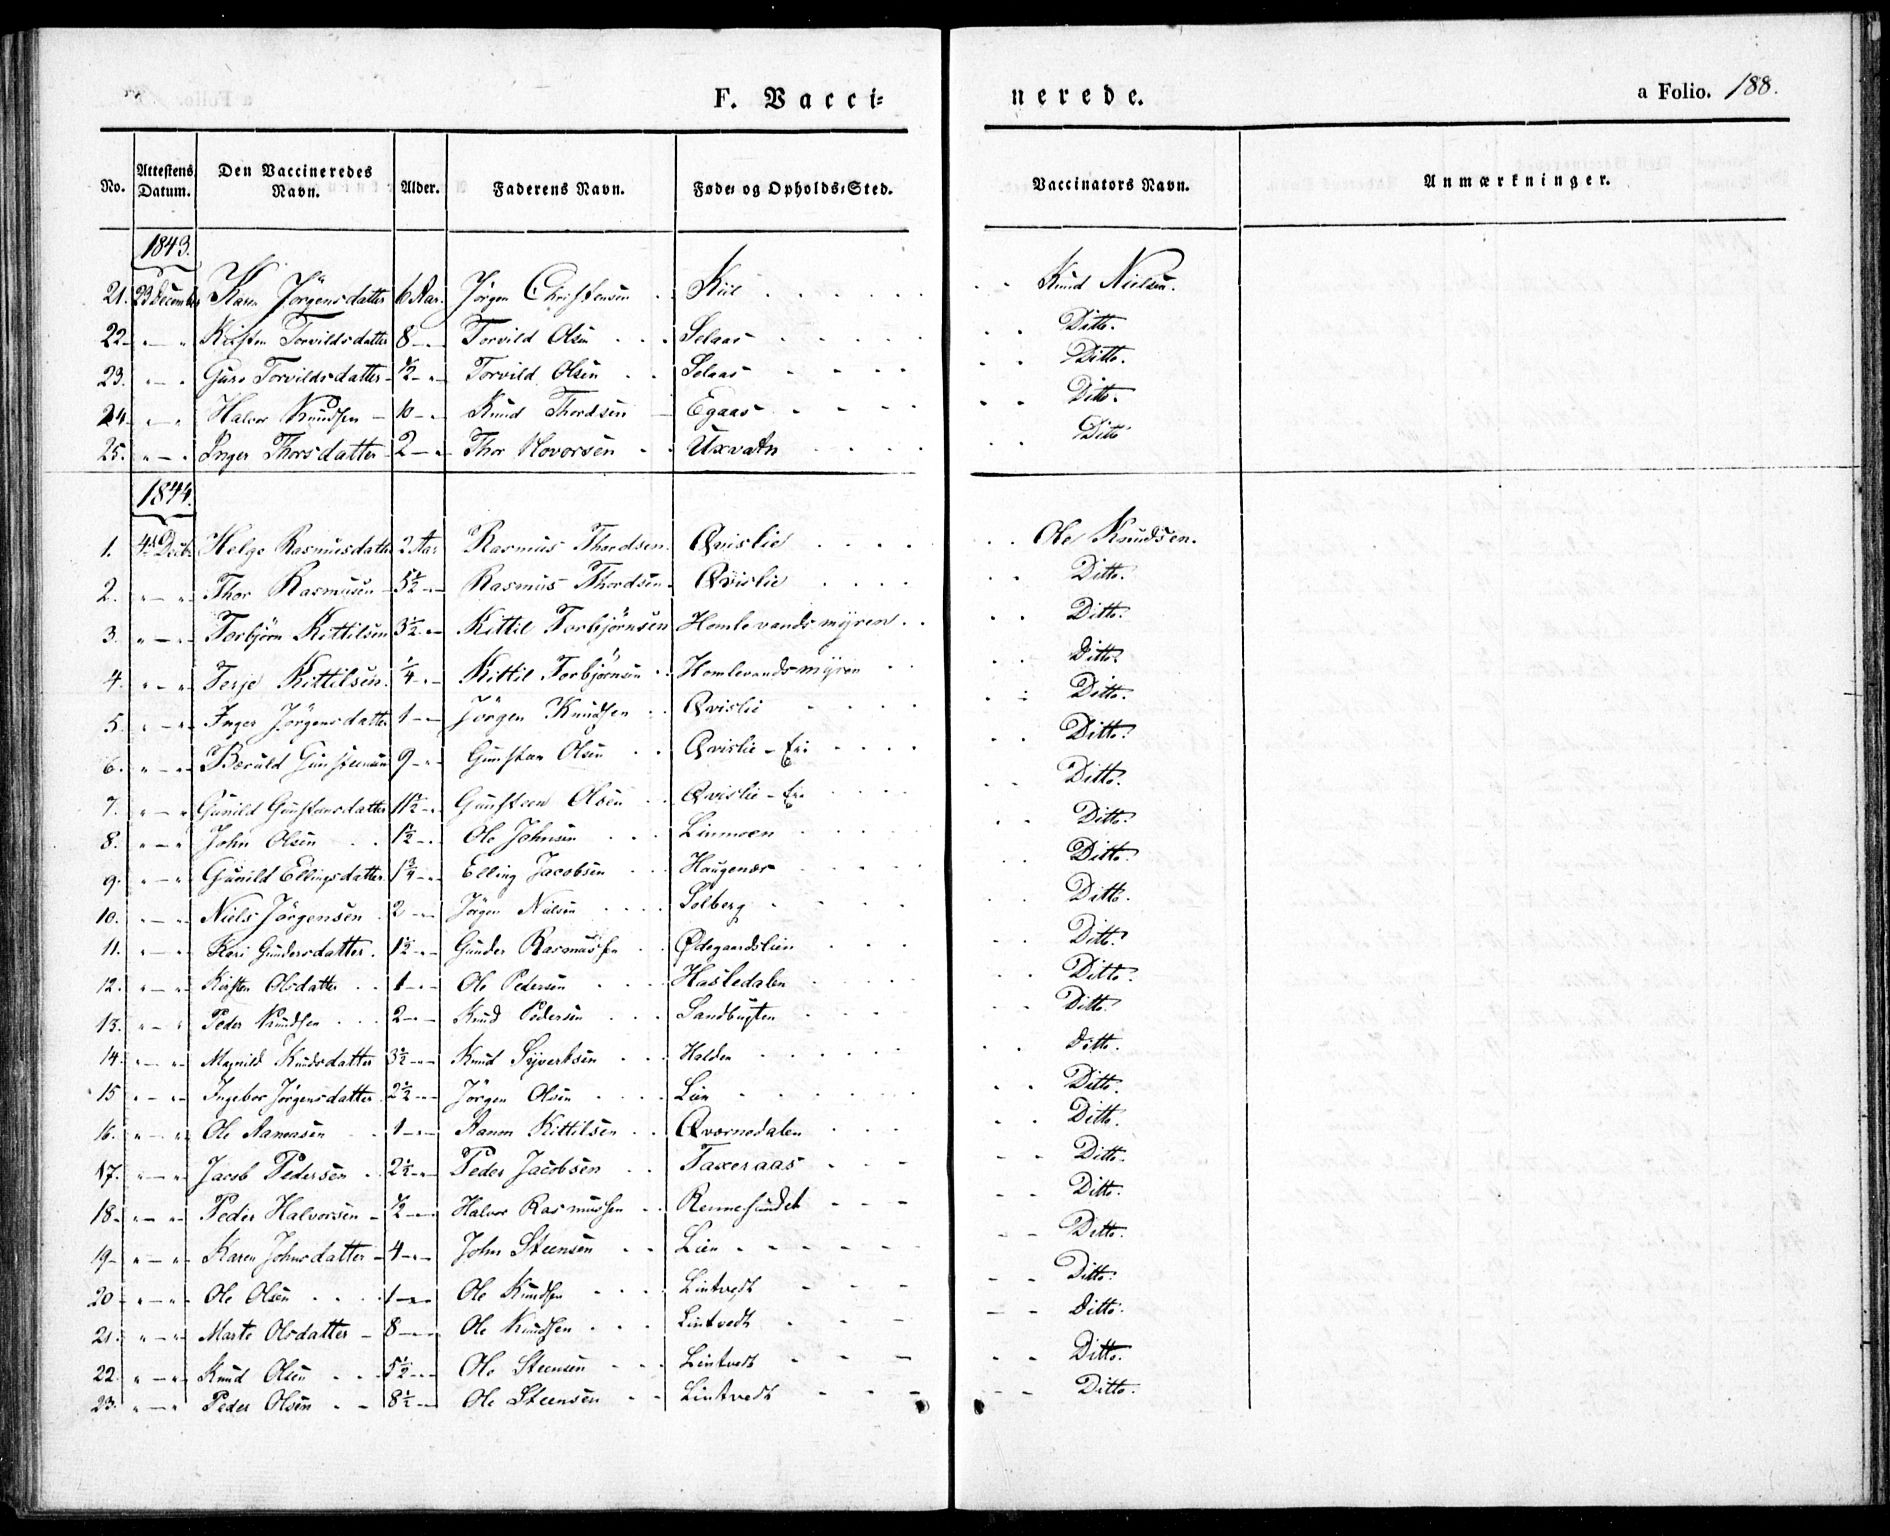 F. Vacci=
nerede.
a Folio. 188.
No. Attestens Datum. Den Vaccineredes Navn. Alder. Faderens Navn. Føde= og Opholds=Sted. Vaccinators Navn. Anmærkninger.
1843.
21. 23 December Karen Jörgensdatter 6 Aar. Jörgen Christensen Kiil Knud Nielsen.
22 " — " Kirsten Torvildsdatter 8 — " Torvild Olsen Selaas Ditto.
23. " — " Guro Torvildsdatter ½ — " Torvild Olsen Selaas Ditto.
24 " — " Halvor Knudsen 10 — " Knud Thordsen Egaas Ditto.
25. " — " Inger Thorsdatter 2 — " Thor Hovorsen Uxvatn Ditto
1844.
1. 4de Decbr. Helge Rasmusdatter 2 Aar Rasmus Thordsen Qvislie Ole Knudsen.
2. " — " Thor Rasmusen 5½ — " Rasmus Thordsen Qvislie Ditto.
3. " — " Torbjörn Kittilsen 3½ — " Kittil Torbjörnsen Homlevandsmÿren Ditto.
4. " — " Terje Kittilsen ¼ — " Kittil Torbjörnsen Homlevandsmÿren Ditto.
5. " — " Inger Jörgensdatter 1 — " Jörgen Knudsen Qvislie Ditto.
6. " — " Bæruld Gunsteensen 9 — " Gunsten Olsen Qvislie - Eie Ditto.
7. " — " Gunild Gunstensdatter 11½ — " Gunsteen Olsen Qvislie - Eie Ditto.
8. " — " John Olsen 1½ — " Ole Johnsen Linmoen Ditto.
9. " — " Gunild Ellingsdatter 1¾ — " Elling Jacobsen Haugenær Ditto.
10. " — " Niels Jörgensen 2 — " Jörgen Nielsen Solberg Ditto.
11. " — " Kari Gundersdatter 1½ — " Gunder Rasmussen Ødegaardslien Ditto.
12. " — " Kirsten Olsdatter 1 — " Ole Pedersen Hasledalen Ditto.
13. " — " Peder Knudsen 2 — " Knud Pedersen Sandbugten Ditto.
14. " — " Magnild Knudsdatter 3½ — " Knud Syvertsen Halden Ditto.
15 " — " Ingebor Jörgensdatter 2½ — " Jörgen Olsen Lien Ditto.
16. " — " Ole Aanonsen 1 — " Aanon Kittilsen Qværnedalen Ditto.
17. " — " Jacob Pedersen 2½ — " Peder Jacobsen Taxeraas Ditto.
18 " — " Peder Halvorsen ½ — " Halvor Rasmussen Rennesundet Ditto.
19 " — " Karen Johnsdatter 4 — " John Steensen Lien Ditto.
20 " — " Ole Olsen 1 — " Ole Knudsen Lintvedt Ditto.
21. " — " Marte Olsdatter 8 — " Ole Knudsen Lintvedt Ditto.
22. " — " Knud Olsen 5½ — " Ole Steensen Lintvedt Ditto.
23. " — " Peder Olsen 8½ — " Ole Steensen Lintvedt Ditto.